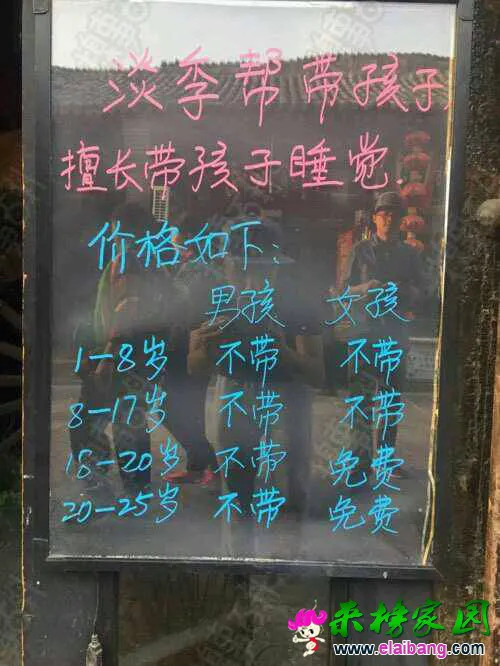 淡季帮带孩子,
擅长带孩子睡觉.
价格如下:
男孩 女孩
1-8岁 不带 不带
8-17岁 不带 不带
18-20岁 不带 免费
20-25岁 不带 免费
来榜家园
www.elaibang.com